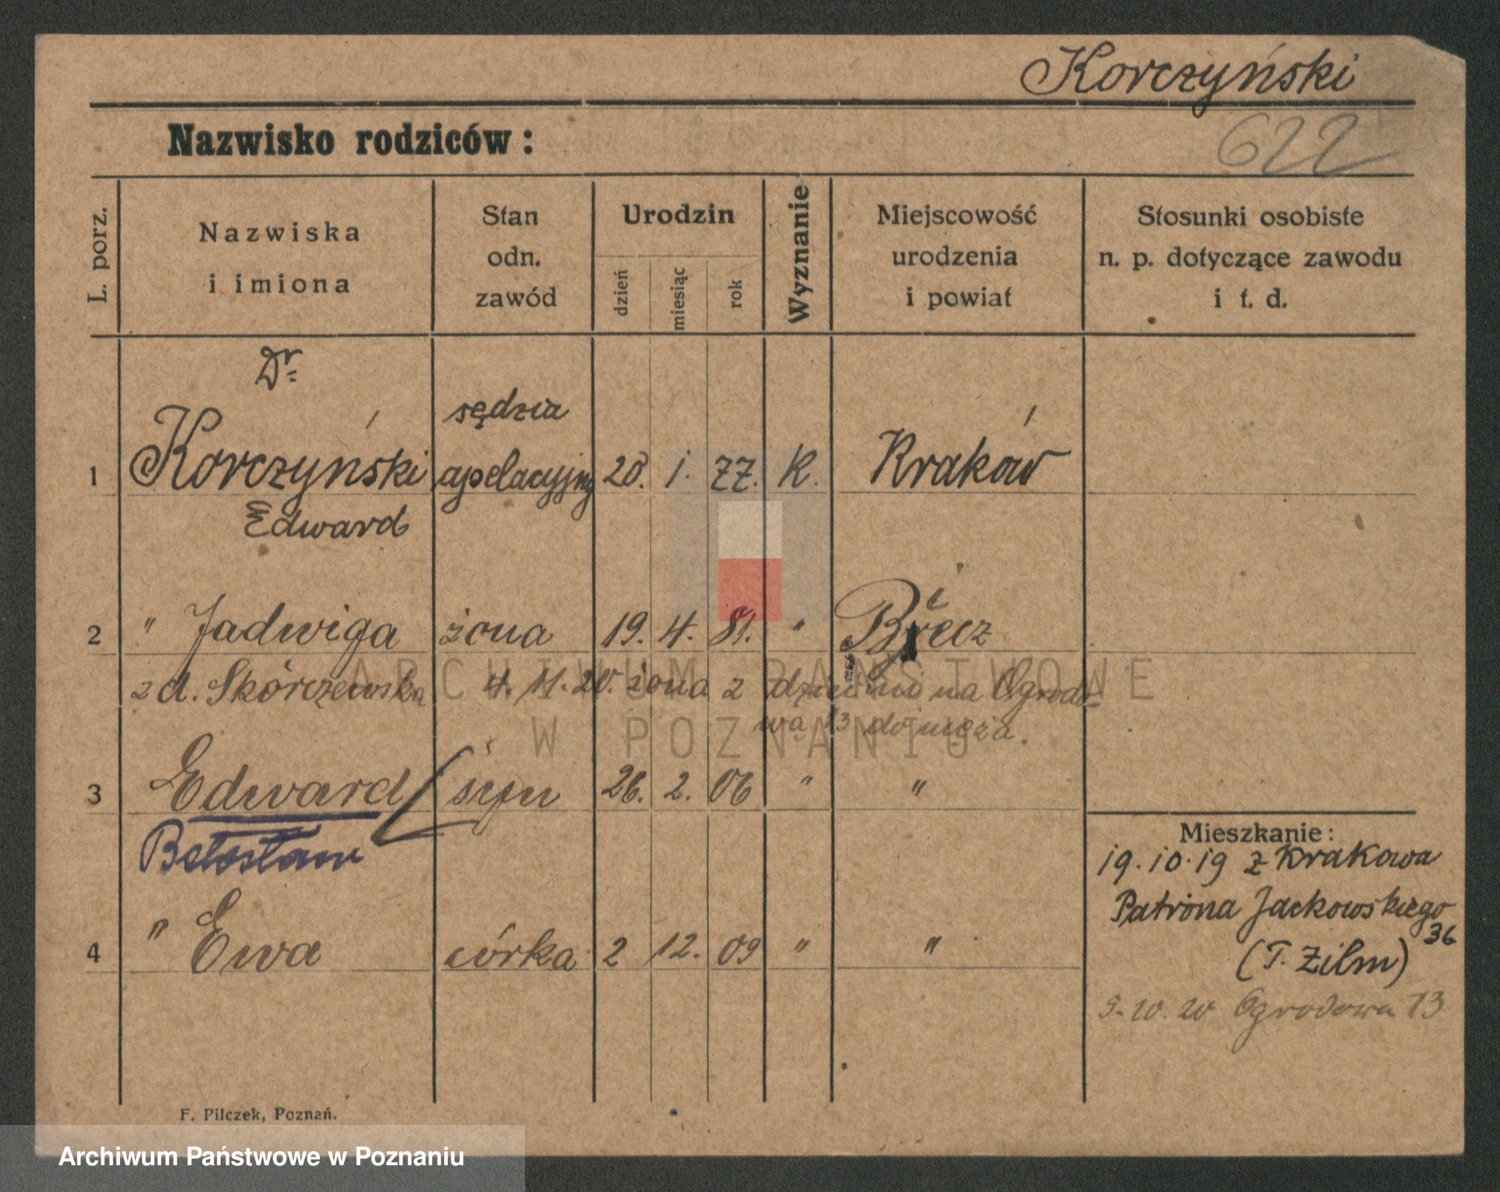 Korczyński
Nazwisko rodziców :
622
L. porz.
Nazwiska
i imiona
Stan
odn.
zawód
Urodzin
dzień
miesiąc
rok
Wyznanie
Miejscowość
urodzenia
i powiat
Stosunki osobiste
n. p. dotyczące zawodu
i t. d.
Dr
1 Korczyński sędzia apelacyjny 20. 1. 77. K. Kraków
Edward
2 " Jadwiga żona 19. 4. 81. "
z d. Skórczewska 4. 11. 20. żona z dziećmi na Ogrodo-
wą 13 do męża.
ARCHIWUM PAŃSTWOWE
W POZNANIU
3 Edward syn 26. 2. 06 " "
4 " Ewa córka 2 12. 09 " "
Mieszkanie :
19.10.19 z Krakowa
Patrona Jackowskiego
36
(T. Zilm)
5.10.20 Ogrodowa 13
F. Pilczek, Poznań.
Archiwum Państwowe w Poznaniu